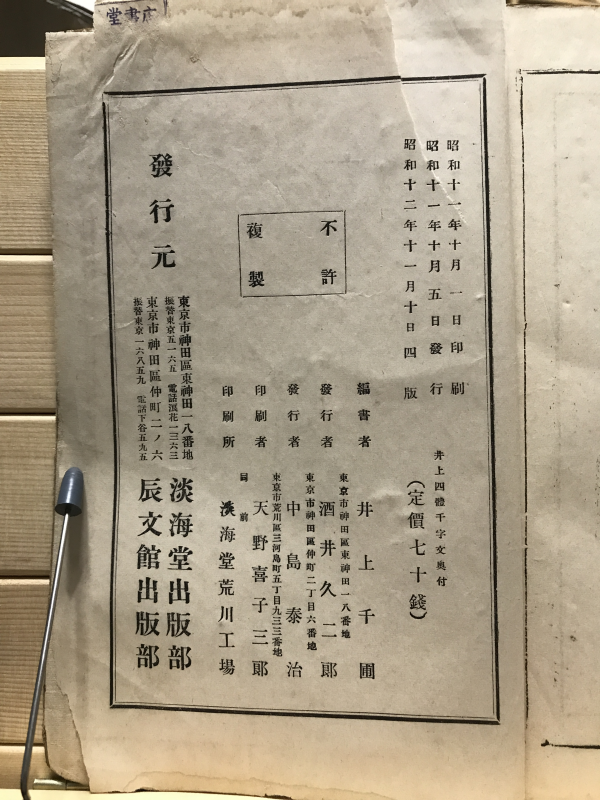 昭和十一年十月一日印刷
昭和十一年十月五日發行
昭和十二年十一月十日四版
井上四體千字文奥付
(定價七十錢)
不許
複製
編書者 井上千圃
東京市神田區東神田一八番地
發行者 酒井久二郎
東京市神田區仲町二丁目六番地
發行者 中島泰治
東京市荒川區三河島町五丁目九三三番地
印刷者 天野喜子三郎
同前
印刷所 淡海堂荒川工場
發行元
東京市神田區東神田一八番地
振替東京五一六五 電話浪花一三六三
淡海堂出版部
東京市神田區仲町二ノ六
振替東京一六八五九 電話下谷五九五
辰文館出版部